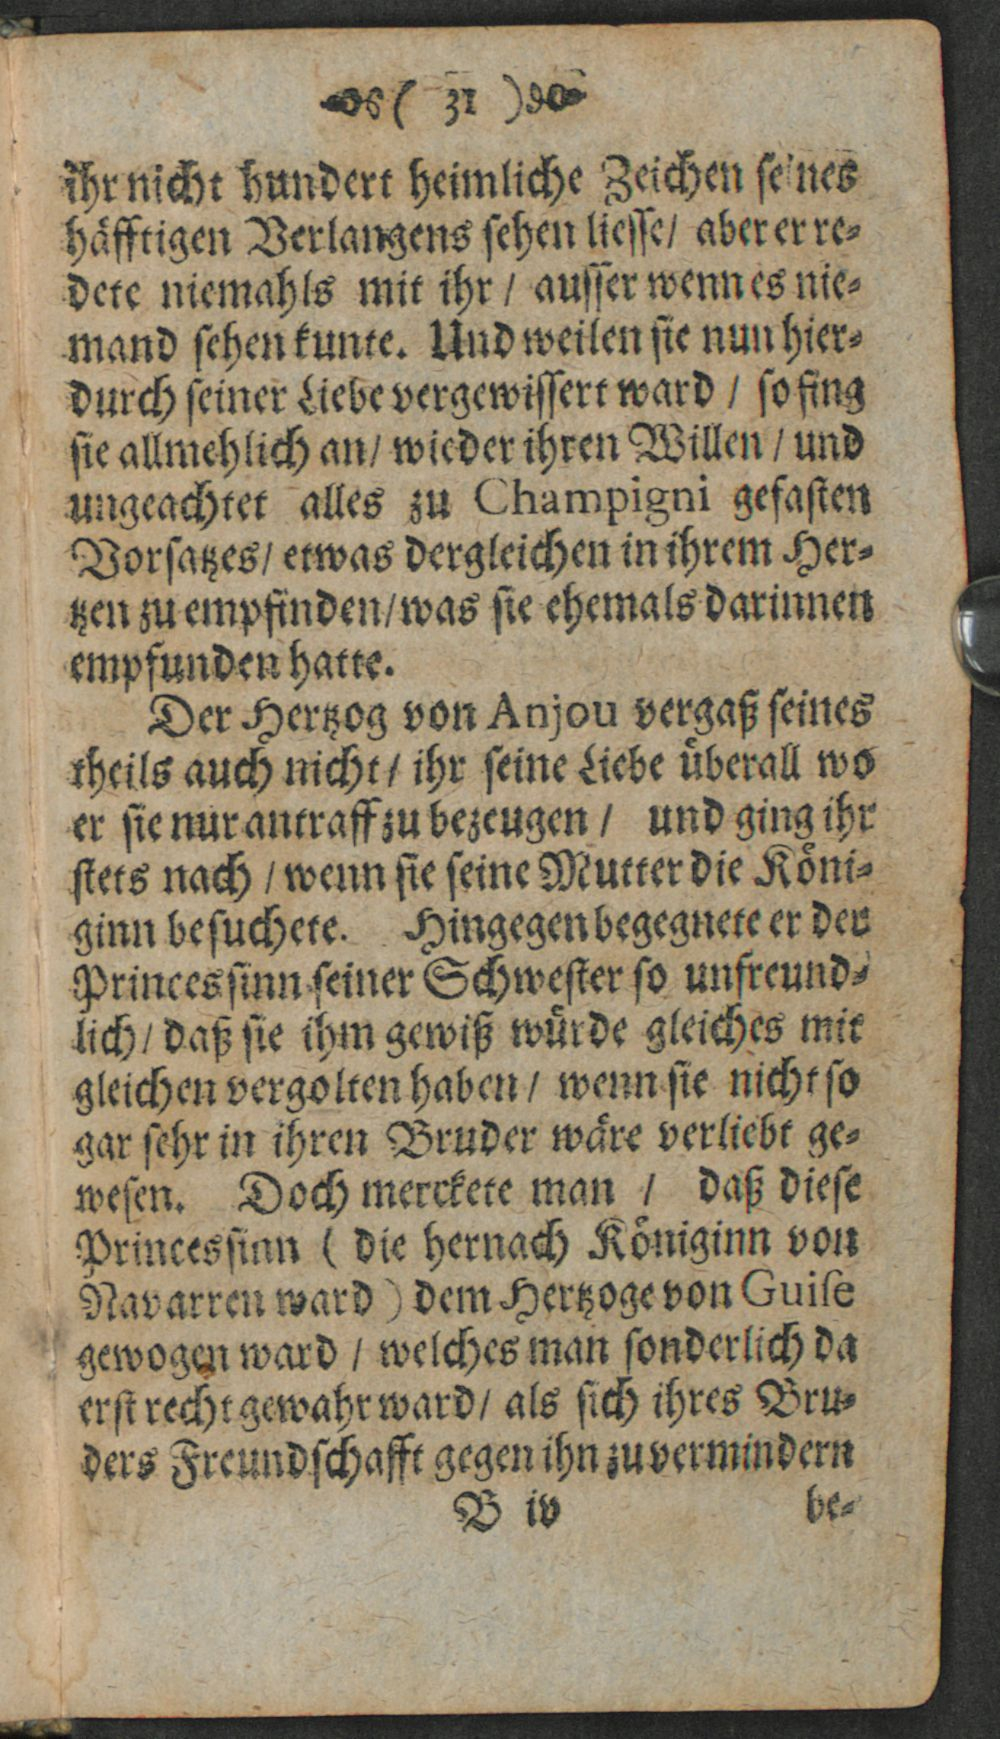 ( 31 )
ihr nicht hundert heimliche Zeichen seines
häfftigen Verlangens sehen liesse/ aber er re-
dete niemahls mit ihr / ausser wenn es nie-
mand sehen kunte. Und weilen sie nun hier-
durch seiner Liebe vergewissert ward / so fing
sie allmehlich an/ wieder ihren Willen / und
ungeachtet alles zu Champigni gefasten
Vorsatzes/ etwas dergleichen in ihrem Her-
tzen zu empfinden/ was sie ehemals darinnen
empfunden hatte.
Der Hertzog von Anjou vergaß seines
theils auch nicht / ihr seine Liebe überall wo
er sie nur antraff zu bezeugen / und ging ihr
stets nach / wenn sie seine Mutter die Köni-
ginn besuchete. Hingegen begegnete er der
Princessinn seiner Schwester so unfreund-
lich / daß sie ihm gewiß würde gleiches mit
gleichen vergolten haben / wenn sie nicht so
gar sehr in ihren Bruder wäre verliebt ge-
wesen. Doch merckete man / daß diese
Princessinn ( die hernach Königinn von
Navarren ward ) dem Hertzoge von Guise
gewogen ward / welches man sonderlich da
erst recht gewahr ward/ als sich ihres Bru-
ders Freundschafft gegen ihn zu vermindern
B iv be-